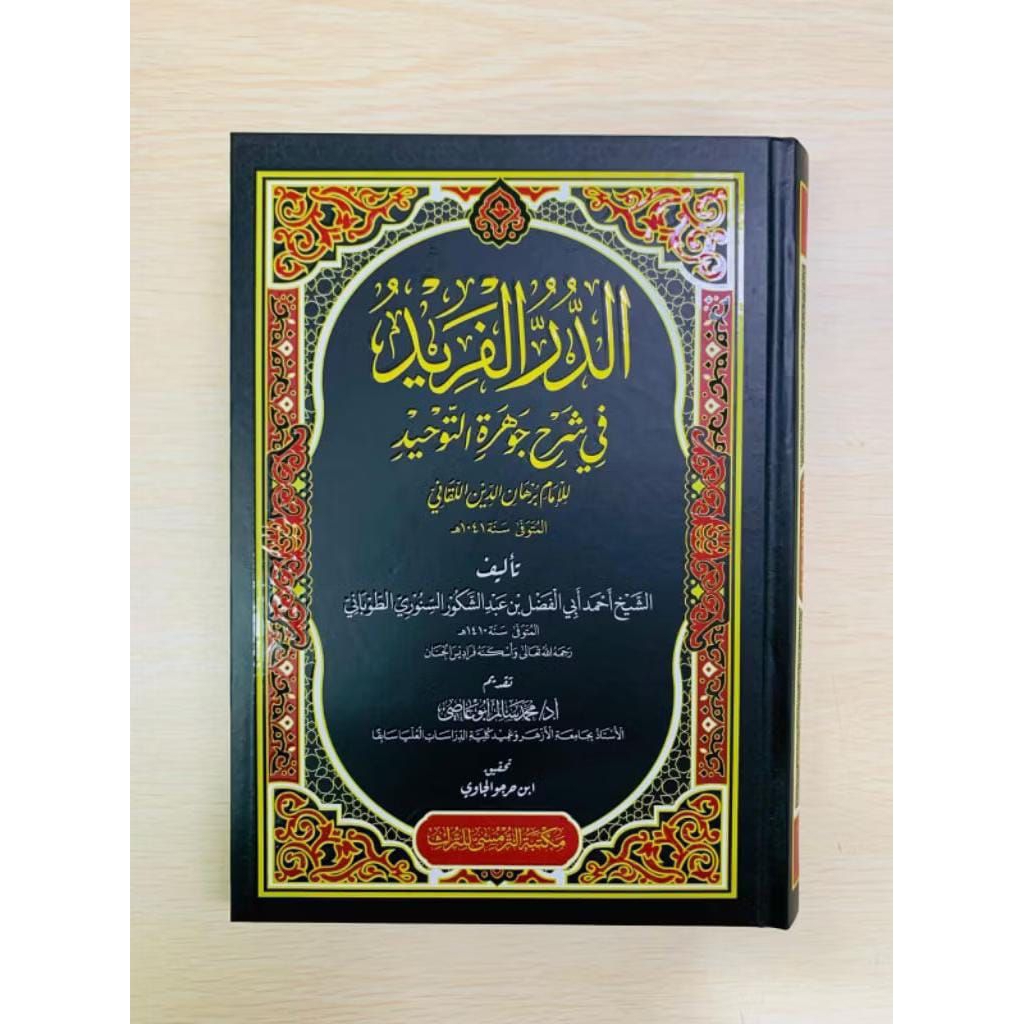 الدُّرُّ الفَرِيْدُ
فِي شَرْحِ جَوْهَرَةِ التَّوْحِيْدِ
لِلإِمَامِ بُرْهَانِ الدِّيْنِ اللَّقَانِيِّ
المُتَوَفَّى سَنَة ١٠٤١هـ
تأليف
الشَّيْخِ أَحْمَد أَبِي الْفَضْلِ بْنِ عَبْدِ الشَّكُوْرِ السِّنُوْرِيِّ الطُّوْبَانِيِّ
المُتَوَفَّى سَنَة ١٤١٠هـ
رَحِمَهُ اللهُ تَعَالَى وَأَسْكَنَهُ فَرَادِيْسَ الْجِنَانِ
تقديم
أ.د/ محمد سالم أبو عاصي
الأُسْتَاذ بِجَامِعَةِ الأَزْهَر وَعَمِيد كُلِّيَّةِ الدِّرَاسَاتِ العُلْيَا سَابِقًا
تحقيق
ابن حرجو الجاوي
مكتبة الترمسي للتراث